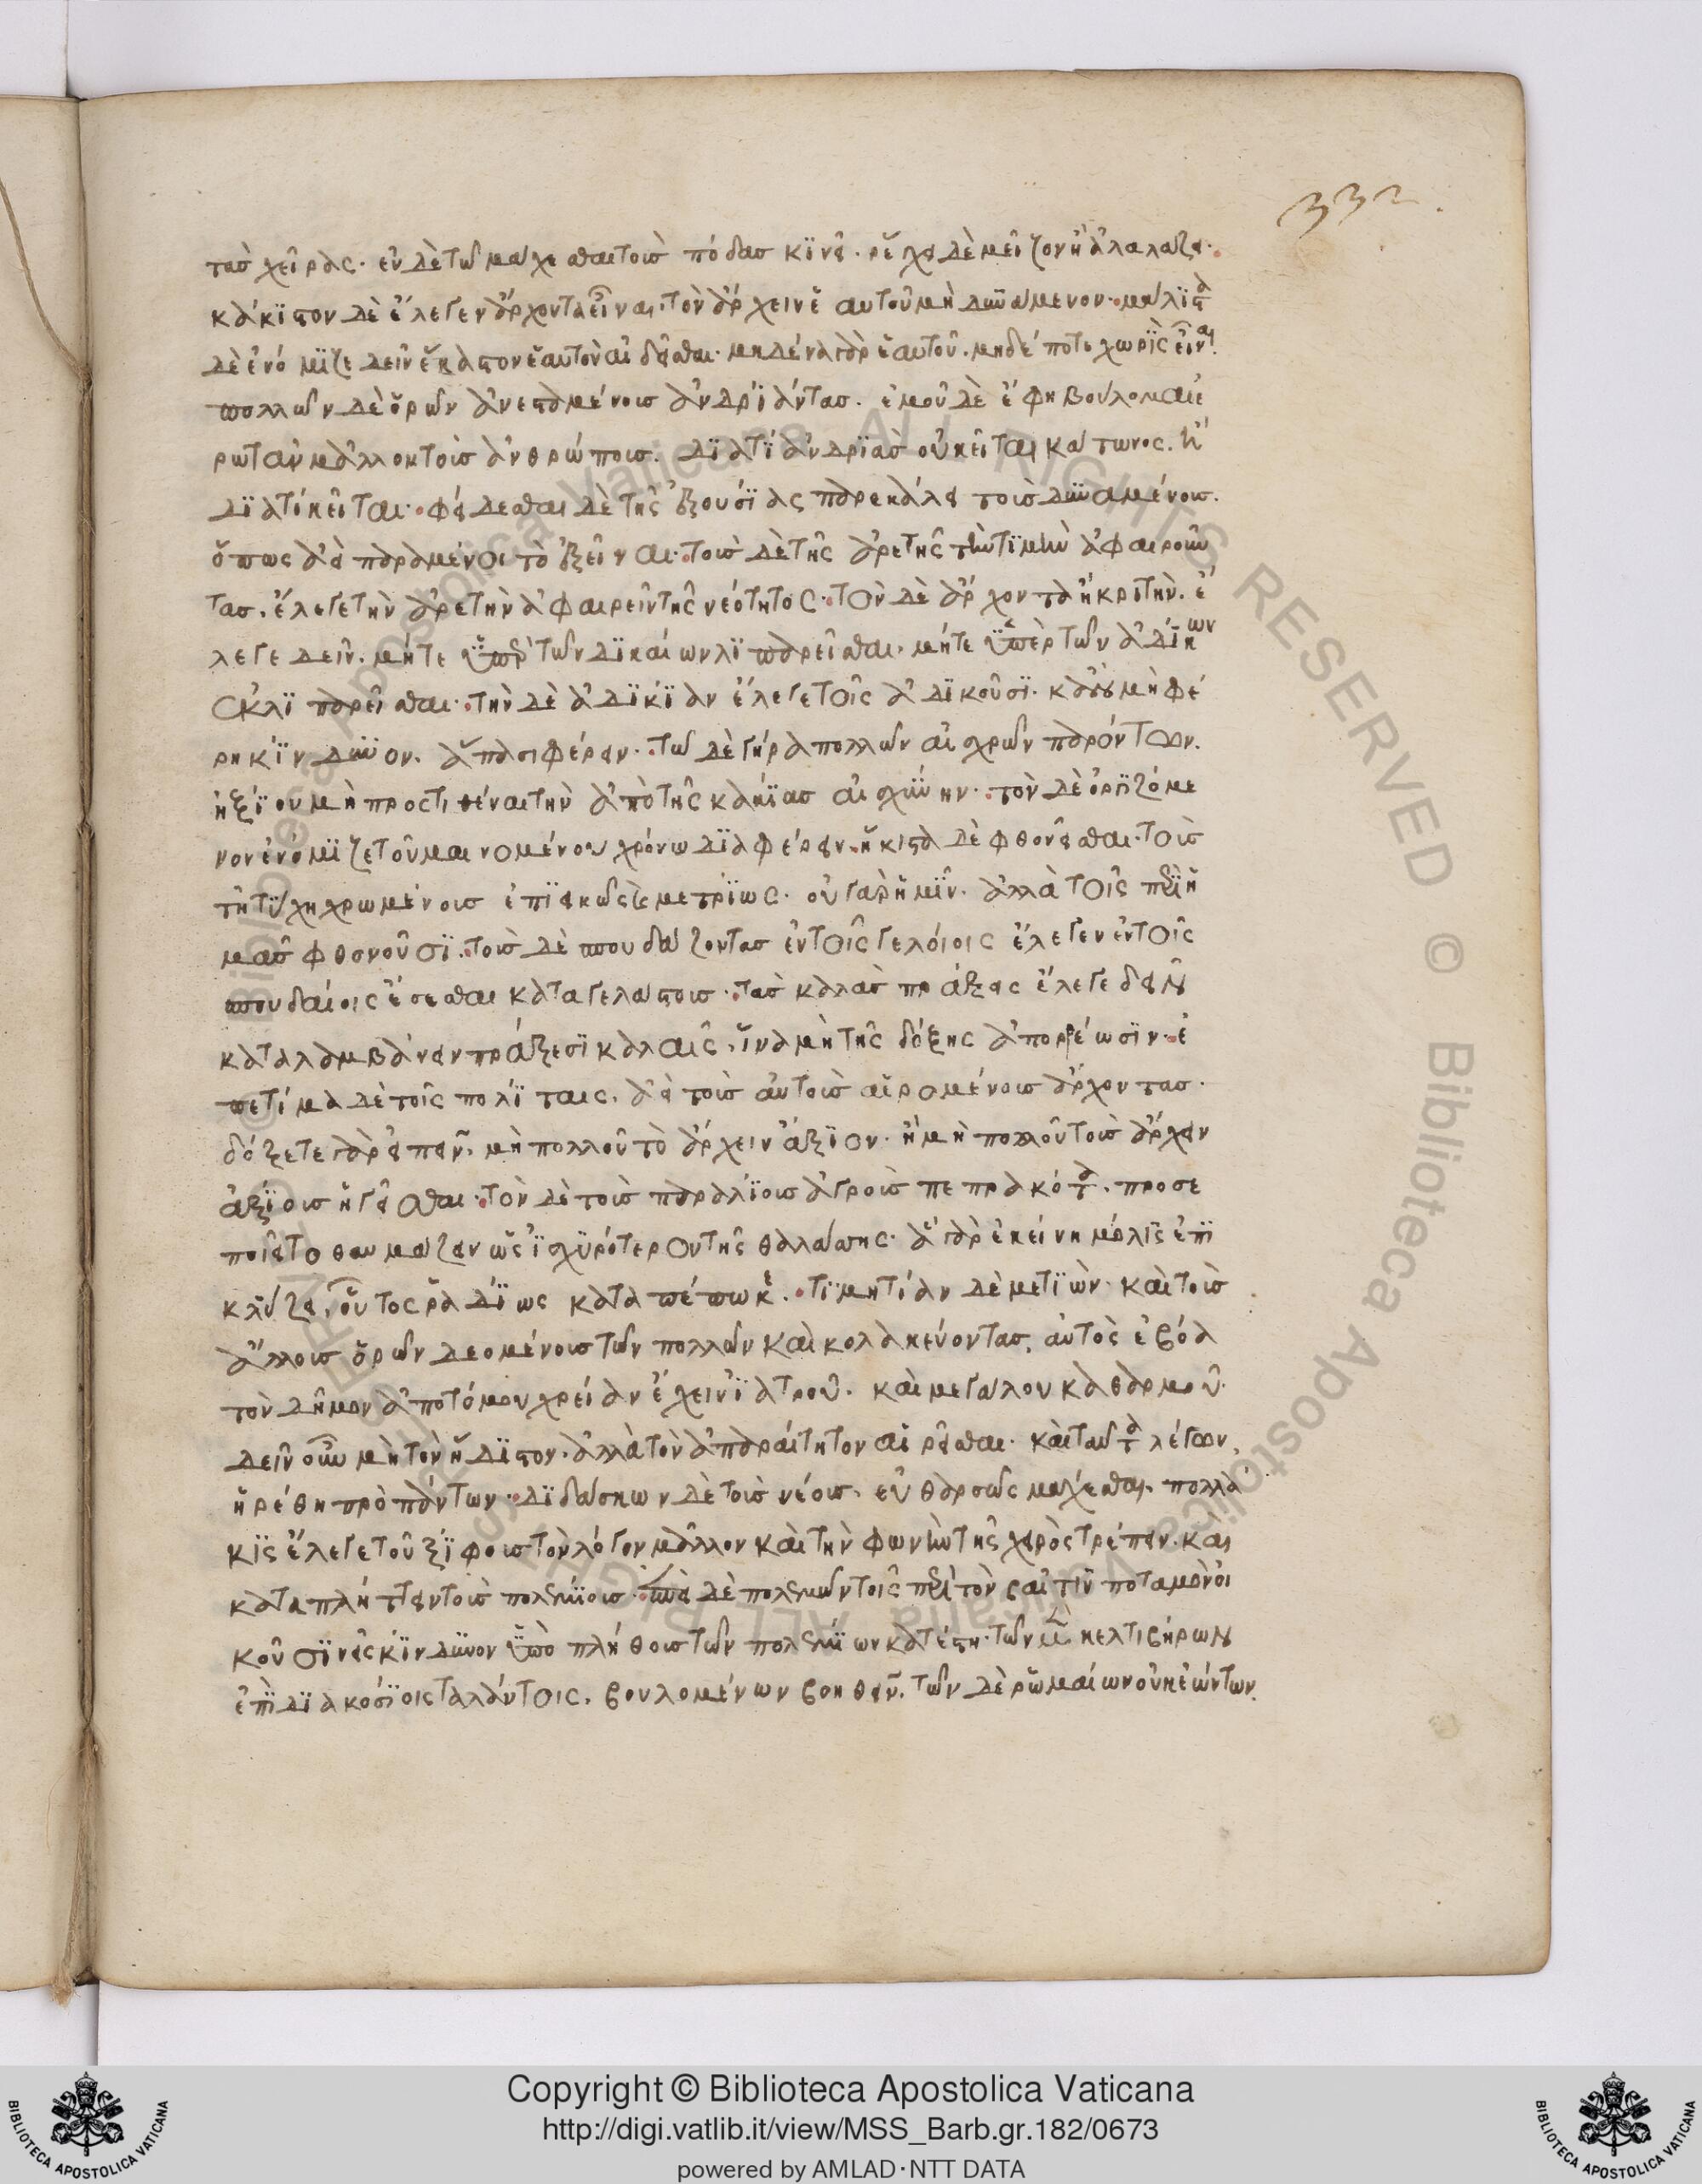 332.
τὰσ χεῖρας· ἐν δὲ τῶ μάχεσθαι τοὺσ πόδασ κϊνεῖ· ῥέγχει δὲ μεῖζον ἢ ἀλαλάζει·
κάκϊστον δὲ ἔλεγεν ἄρχοντα εἶναι, τὸν ἄρχειν ἑαυτοῦ μὴ δυνάμενον· μάλϊστα
δὲ ἐνόμϊζε δεῖν ἕκαστον ἑαυτὸν αἰδεῖσθαι· μηδένα γὰρ ἑαυτοῦ μηδέποτε χωρὶς εἶναι.
πολλῶν δὲ ὁρῶν ἀνεσταμένουσ ἀνδρϊάντασ. ἐμοῦ δὲ ἔφη βούλομαι ἐ
ρωτᾶν μᾶλλον τοὺσ ἀνθρώπουσ. δϊατί ἀνδρϊὰσ οὐ κεῖται κάτωνος. ἢ
δϊατί κεῖται· φείδεσθαι δὲ τῆς ἐξουσίας παρεκάλει τοὺσ δυναμένουσ.
ὅπως ἀεὶ παραμένοι τὸ ἐξεῖναι· τοὺσ δὲ τῆς ἀρετῆς τὴν τϊμὴν ἀφαιροῦν
τασ. ἔλεγε τὴν ἀρετὴν ἀφαιρεῖν τῆς νεότητος· τὸν δὲ ἄρχοντα ἢ κριτὴν. ἔ
λεγε δεῖν. μήτε ὑπὲρ τῶν δϊκαίων λϊπαρεῖσθαι. μήτε ὑπὲρ τῶν ἀδίκων
ἐκλϊπαρεῖσθαι· τὴν δὲ ἀδϊκίαν ἔλεγε τοῖς ἀδϊκοῦσϊ. κἂν μὴ φέ
ρη κίνδυνον. ἅπασι φέρειν· τῶ δὲ γήρα πολλῶν αἰσχρῶν παρόντων.
ἠξίου μὴ προστιθέναι τὴν ἀπὸ τῆς κακίασ αἰσχύνην· τὸν δὲ ὀργϊζόμε
νον ἐνόμϊζε τοῦ μαινομένου χρόνω δϊαφέρειν. ἥκιστα δὲ φθονεῖσθαι. τοὺσ
τῆ τύχη χρωμένουσ ἐπϊεικῶς καὶ μετρίως. οὐ γὰρ ἡμῖν. ἀλλὰ τοῖς περὶ ἡ
μᾶσ φθονοῦσϊ. τοὺσ δὲ σπουδάζοντασ ἐν τοῖς γελοίοις ἔλεγεν ἐν τοῖς
σπουδαίοις ἔσεσθαι καταγελάστουσ· τὰσ καλὰσ πράξεις ἔλεγε δεῖν
καταλαμβάνειν πράξεσϊ καλαῖς, ἵνα μὴ τῆς δόξης ἀπορρέωσϊν· ἐ
πετίμα δὲ τοῖς πολίταις. ἀεὶ τοὺσ αὐτοὺσ αἱρομένουσ ἄρχοντασ·
δόξετε γὰρ εἰπεῖν. μὴ πολλοῦ τὸ ἄρχειν ἄξϊον· ἢ μὴ πολλοὺσ τοῦ ἄρχειν
ἀξίουσ ἡγεῖσθαι· τὸν δὲ τοὺσ παραλίουσ ἀγροὺσ πεπρακότα. προσε
ποιεῖτο θαυμάζειν ὡς ἰσχϋρότερον τῆς θαλάττης. ἃ γὰρ ἐκείνη μόλις ἐπϊ
κλύζει, οὗτος ραδίως καταπέπωκε. τϊμητίαν δὲ μετϊὼν· καὶ τοὺσ
ἄλλουσ ὁρῶν δεομένουσ τῶν πολλῶν καὶ κολακεύοντασ, αὐτὸς ἐβόα
τὸν δῆμον ἀποτόμου χρείαν ἔχειν ἰατροῦ. καὶ μεγάλου καθαρμοῦ·
δεῖν οὖν μὴ τὸν ἥδϊστον. ἀλλὰ τὸν ἀπαραίτητον αἱρεῖσθαι· καὶ ταῦτα λέγων,
ἡρέθη πρὸ πάντων· δϊδάσκων δὲ τοὺσ νέουσ. εὐθαρσῶς μάχεσθαι. πολλά
κϊς ἔλεγε τοῦ ξίφουσ τὸν λόγον μᾶλλον καὶ τὴν φωνὴν τῆς χειρὸς τρέπειν. καὶ
καταπλήττειν τοὺσ πολεμίουσ· ἐπεὶ δὲ πολεμῶν τοῖς περὶ τὸν βαῖτιν ποταμὸν οἰ
κοῦσϊν εἰς κίνδυνον ὑπὸ πλήθουσ τῶν πολεμίων κατέστη· τῶν μὲν κελτιβήρων
ἐπὶ δϊακοσίοις ταλάντοις. βουλομένων βοηθεῖν. τῶν δὲ ρωμαίων οὐκ ἐώντων.